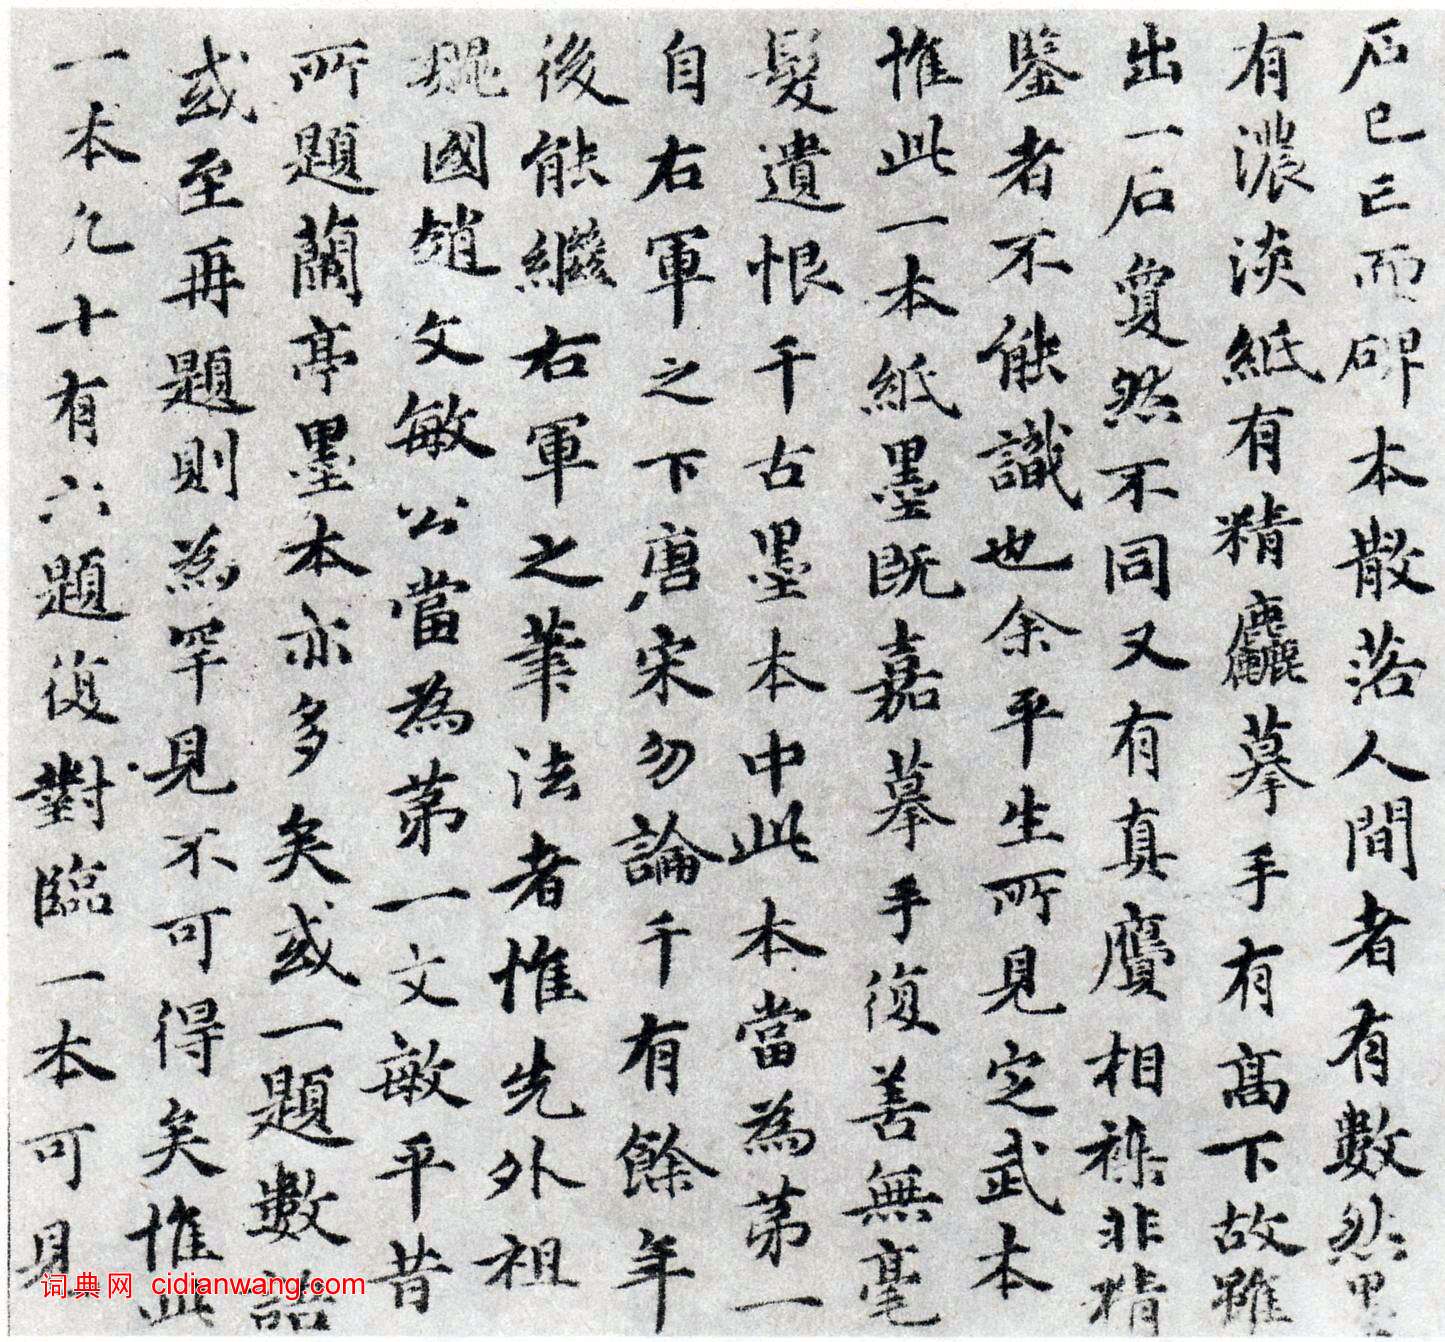 石已亡而碑本散落人間者有數然墨
有濃淡紙有精麤摹手有高下故雖
出一石夐然不同又有真贗相襍非精
鑒者不能識也余平生所見定武本
惟此一本紙墨既嘉摹手復善無毫
髮遺恨千古墨本中此本當為第一
自右軍之下唐宋勿論千有餘年
後能繼右軍之筆法者惟先外祖
魏國趙文敏公當為第一文敏平昔
所題蘭亭墨本亦多矣或一題數語
或至再題則為罕見不可得矣惟此
一本凡十有六題復對臨一本可見
词典网 cidianwang.com